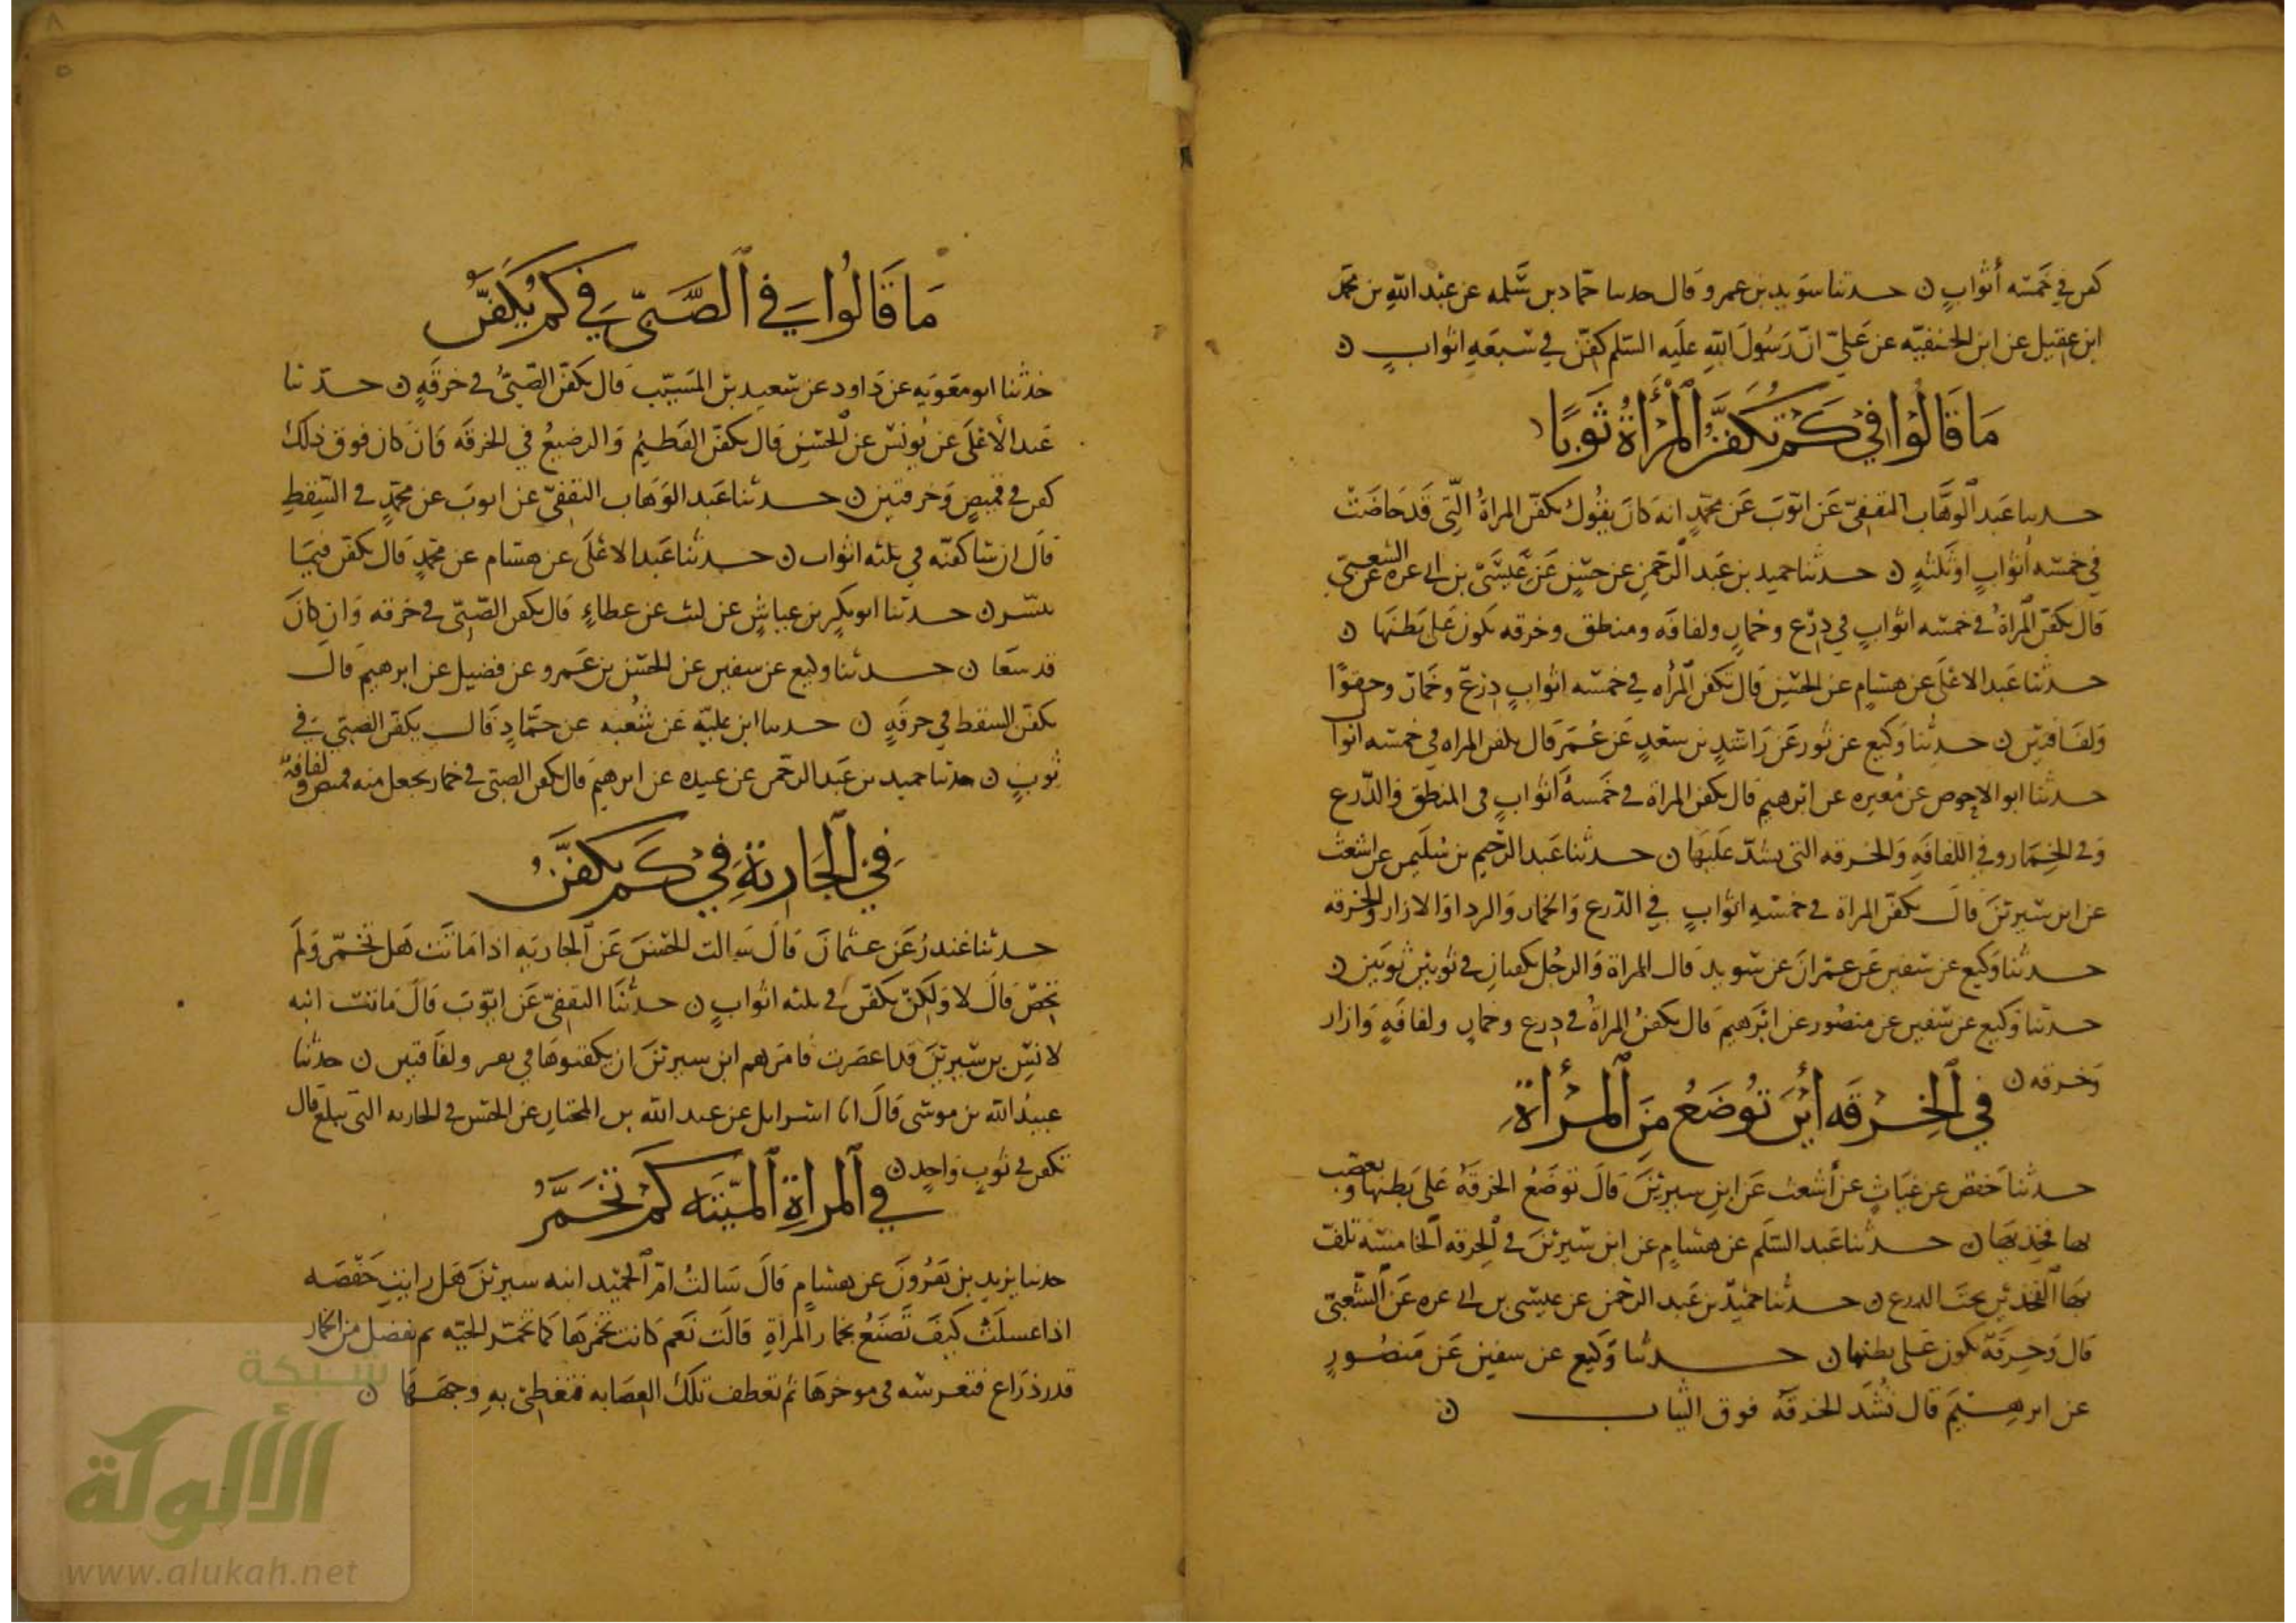 كفن في خمسه أثواب ن حدثنا سويد بن عمرو قال حدثنا حماد بن سلمه عن عبد الله بن محمد
ابن عقيل عن ابن الحنفيه عن علي ان رسول الله عليه السلم كفن في سبعه اثواب ن
ما قالوا في كم تكفن المرأة ثوبا
حدثنا عبد الوهاب الثقفي عن ايوب عن محمد انه كان يقول تكفن المراة التي قد حاضت
في خمسه أثواب او ثلثه ن حدثنا حميد بن عبد الرحمن عن حسن عن عيسى بن ابي عزه عن الشعبي
قال تكفن المراة في خمسه اثواب في درع وخمار ولفافه ومنطق وخرقه تكون على بطنها ن
حدثنا عبد الاعلى عن هشام عن الحسن قال تكفن المرأه في خمسه اثواب درع وخمار وحقو
ولفافتين ن حدثنا وكيع عن ثور عن راشد بن سعد عن عمر قال تكفن المراه في خمسه اثوا
حدثنا ابو الاحوص عن مغيره عن ابرهيم قال تكفن المراة في خمسة أثواب في المنطق والدرع
وفي الخمار وفي اللفافه والخرقه التي تشد عليها ن حدثنا عبد الرحيم بن سليمن عن اشعث
عن ابن سيرين قال تكفن المراة في خمسه اثواب في الدرع والخمار والردا والازار والخرقه
حدثنا وكيع عن سفين عن عمران عن سويد قال المراة والرجل يكفنان في ثوبين ثوبين ن
حدثنا وكيع عن سفين عن منصور عن ابرهيم قال تكفن المراة في درع وخمار ولفافه وازار
وخرقه ن
في الخرقه أين توضع من المرأة
حدثنا حفص عن غياث عن أشعث عن ابن سيرين قال توضع الخرقة على بطنها ويعصب
بها فخذيها ن حدثنا عبد السلم عن هشام عن ابن سيرين في الخرقه الخامسة تلف
بها الفخذين تحت الدرع ن حدثنا حميد بن عبد الرحمن عن عيسى بن ابي عزه عن الشعبي
قال وخرقة تكون على بطنها ن حدثنا وكيع عن سفين عن منصور
عن ابرهيم قال تشد الخرقة فوق الثياب ن
ما قالوا في الصبي في كم يكفن
حدثنا ابو معويه عن داود عن سعيد بن المسيب قال يكفن الصبي في خرقه ن حدثنا
عبد الأعلى عن يونس عن الحسن قال يكفن الفطيم والرضيع في الخرقه فان كان فوق ذلك
كفن في قميص وخرقتين ن حدثنا عبد الوهاب الثقفي عن ايوب عن محمد في السقط
قال ان شا كفنه في ثلثه اثواب ن حدثنا عبد الاعلى عن هشام عن محمد قال يكفن فيما
تيسر ن حدثنا ابو بكر بن عياش عن ليث عن عطاء قال يكفن الصبي في خرقه وان كان
قد سعا ن حدثنا وكيع عن سفين عن الحسن بن عمرو عن فضيل عن ابرهيم قال
يكفن السقط في خرقه ن حدثنا ابن عليه عن شعبه عن حماد قال يكفن الصبي في
ثوب ن حدثنا حميد بن عبد الرحمن عن عبيده عن ابرهيم قال يكفن الصبي في خمار يجعل منه قميص ولفافة
في الجارية في كم تكفن
حدثنا غندر عن عثمان قال سالت الحسن عن الجاريه اذا ماتت هل تخمر ولم
تحض قال لا ولكن تكفن في ثلثه اثواب ن حدثنا الثقفي عن ايوب قال ماتت ابنه
لانس بن سيرين قد اعصرت فامرهم ابن سيرين ان يكفنوها في ولفافتين ن حدثنا
عبيد الله بن موسى قال انا اسرائل عن عبد الله بن المختار عن الحسن في الجاريه التي تبلغ قال
تكفن في ثوب واحد ن
في المراة الميته كم تخمر
حدثنا يزيد بن هرون عن هشام قال سالت ام الحميد ابنه سيرين هل رايت حفصه
اذا غسلت كيف تصنع بخمار المراة قالت نعم كانت تخمرها كما تخمر الحيه ثم يفضل من الخمار
قدر ذراع فتفرشه في موخرها ثم تعطف تلك العصابه فتغطي به وجهها ن
شبكة
الألوكة
www.alukah.net